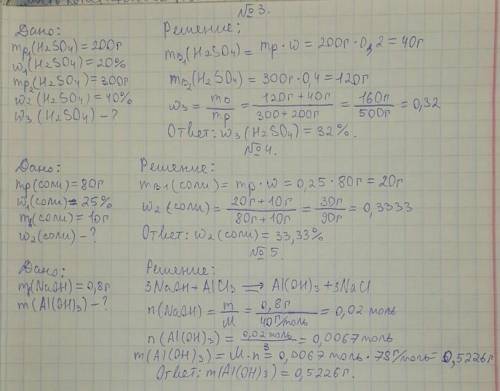 №3.
Дано:
mp₁(H₂SO₄)=200г
w₁(H₂SO₄)=20%
mp₂(H₂SO₄)=300г
w₂(H₂SO₄)=40%
w₃(H₂SO₄)-?
Решение:
mв₁(H₂SO₄)=mp·w=200г·0,2=40г
mв₂(H₂SO₄)=300г·0,4=120г
w₃=mв/mp=120г+40г/300+200г=160г/500г=0,32
Ответ: w₃(H₂SO₄)=32%.
№4.
Дано:
mp(соли)=80г
w₁(соли)=25%
m(соли)=10г
w₂(соли)-?
Решение:
mв₁(соли)=mp·w=0,25·80г=20г
w₂(соли)=20г+10г/80г+10г=30г/90г=0,3333
Ответ: w₂(соли)=33,33%
№5.
Дано:
m(NaOH)=0,8г
m(Al(OH)₃)-?
Решение:
3NaOH+AlCl₃⇒Al(OH)₃+3NaCl
n(NaOH)=m/M=0,8г/40г/моль=0,02 моль
n(Al(OH)₃)=0,02 моль/3=0,0067 моль
m(Al(OH)₃)=M·n=0,0067 моль·78г/моль=0,5226г
Ответ: m(Al(OH)₃)=0,5226г.